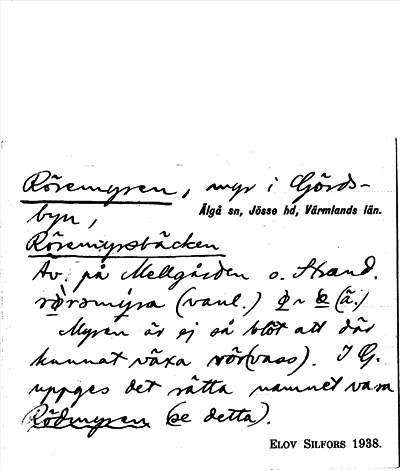 Röremyren, myr i Görds-
byn, Älgå sn, Jösse hd, Värmlands län.
Röremyrsbäcken
Äv. på Mellgården o. Strand.
(vanl.) (ä.)
Myren är ej så blöt att där
kunnat växa rör(vass). I G.
uppges det rätta namnet vara
Rödmyren (se detta).
ELOV SILFORS 1938.